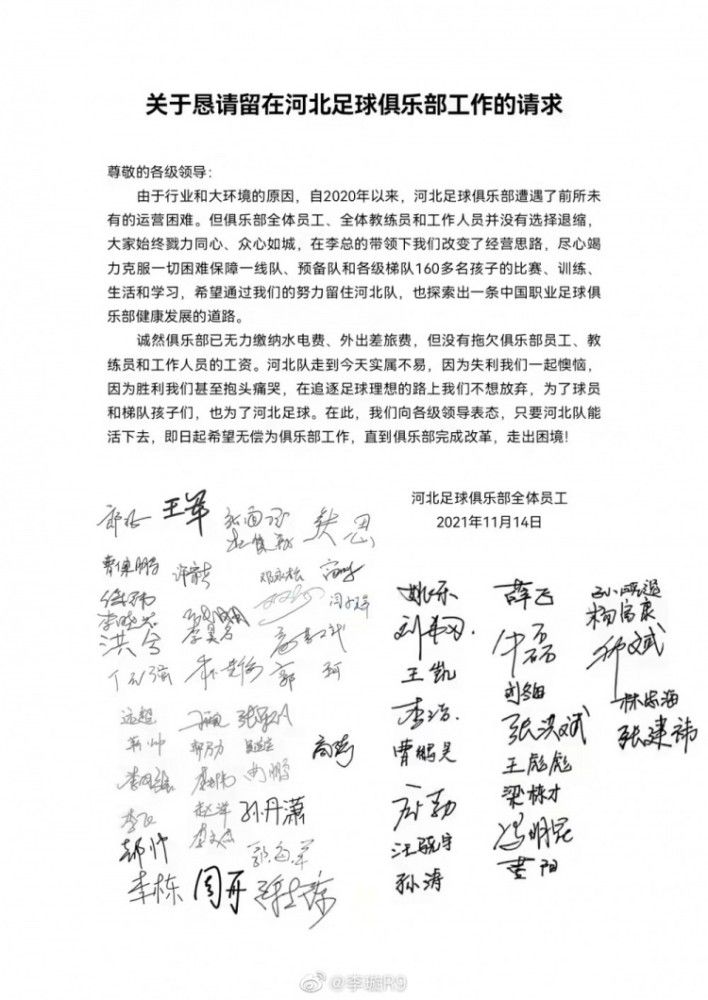 关于恳请留在河北足球俱乐部工作的请求
尊敬的各级领导：
由于行业和大环境的原因，自2020年以来，河北足球俱乐部遭遇了前所未
有的运营困难。但俱乐部全体员工、全体教练员和工作人员并没有选择退缩，
大家始终戮力同心、众心如城，在李总的带领下我们改变了经营思路，尽心竭
力克服一切困难保障一线队、预备队和各级梯队160多名孩子的比赛、训练、
生活和学习，希望通过我们的努力留住河北队，也探索出一条中国职业足球俱
乐部健康发展的道路。
诚然俱乐部已无力缴纳水电费、外出差旅费，但没有拖欠俱乐部员工、教
练员和工作人员的工资。河北队走到今天实属不易，因为失利我们一起懊恼，
因为胜利我们甚至抱头痛哭，在追逐足球理想的路上我们不想放弃，为了球员
和梯队孩子们，也为了河北足球。在此，我们向各级领导表态，只要河北队能
活下去，即日起希望无偿为俱乐部工作，直到俱乐部完成改革，走出困境！
河北足球俱乐部全体员工
2021年11月14日
王军
曹保鹏
洪兮
郭 珂
远超
孙丹潇
李栋 周开
姚乐
王凯
李浩
曹鹏昊
汪骁宇
孙涛
薛飞
牛磊
张洪斌
王彪彪
梁栋才
冯明昆
杨富康
林忠海
张建祎
@李璇R9